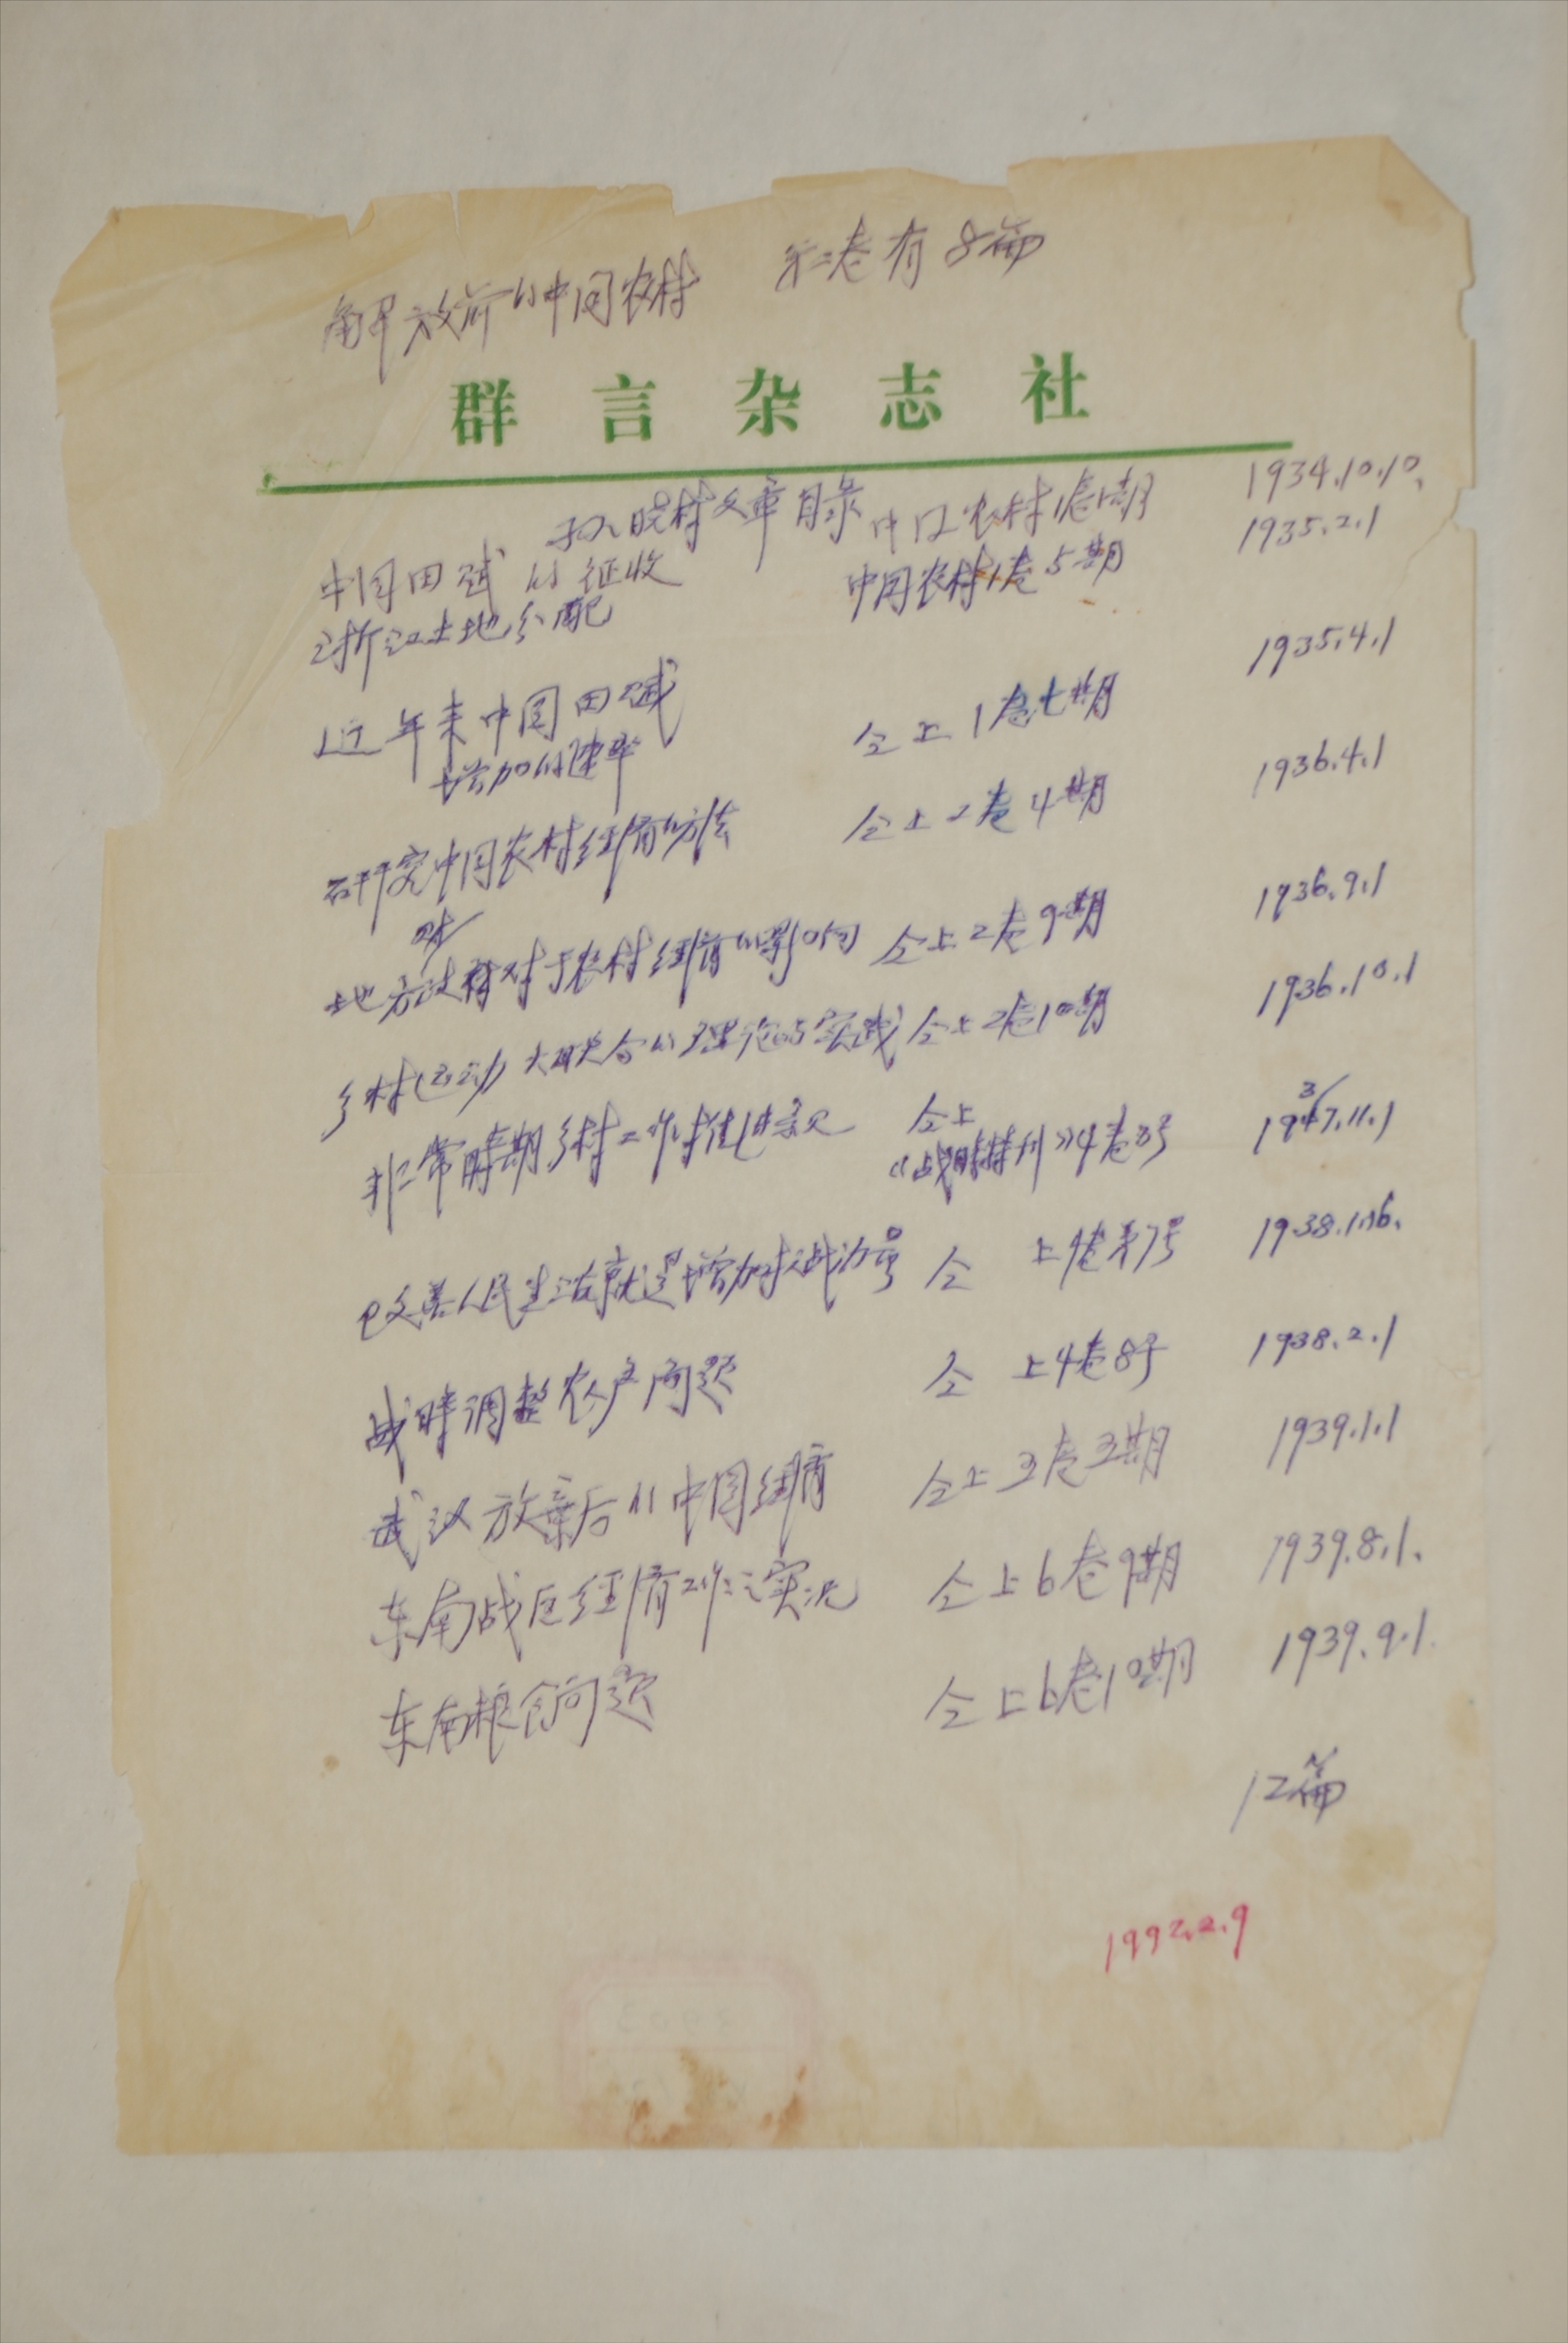 解放前的中国农村 第二卷有8篇
群言杂志社
孙晓村文章目录
中国田赋的征收 中国农村1卷1期 1934.10.10.
浙江土地分配 中国农村1卷5期 1935.2.1
近年来中国田赋
增加的速率 仝上1卷七期 1935.4.1
研究中国农村经济的方法 仝上2卷4期 1936.4.1
地方财政对于农村经济的影响 仝上2卷9期 1936.9.1
乡村运动大联合的理论与实践 仝上2卷10期 1936.10.1
非常时期乡村工作 仝上
《战时特刊》4卷3号 1937.11.1
改善人民生活就是增加抗战力量 仝上4卷第7号 1938.1.16.
战时调整农产问题 仝上4卷8号 1938.2.1
武汉放弃后的中国经济 仝上 1939.1.1
东南战区经济工作之实况 仝上6卷9期 1939.8.1.
东南粮食问题 仝上6卷10期 1939.9.1.
12篇
1992.2.9